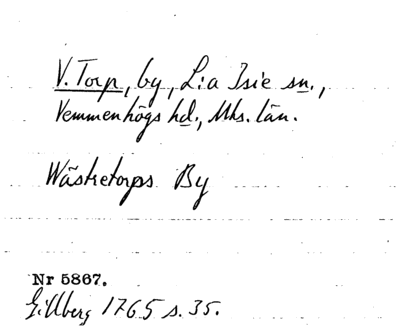 V. Torp, by, L:a Isie sn.,
Vemmenhögs hd., Mhs. län.
Wästretorps By
Nr 5867.
Gillberg 1765 s. 35.